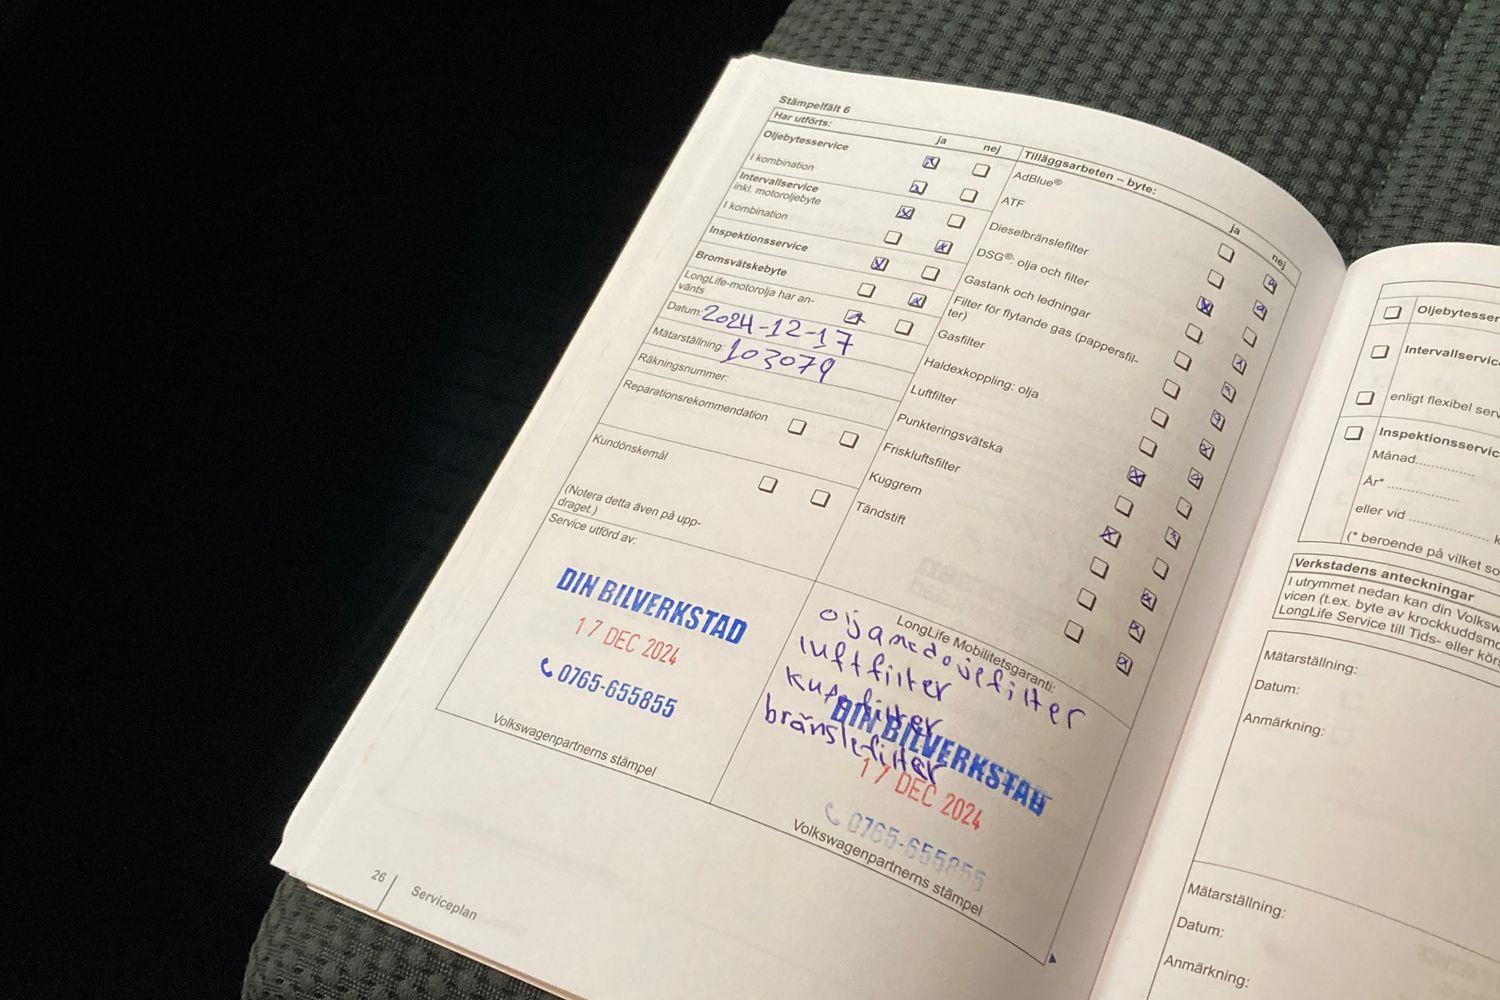 Stämpelfält 6
Har utförts:
ja
nej
Oljebytesservice
I kombination
Intervallservice
inkl. motoroljebyte
I kombination
Inspektionsservice
Bromsvätskebyte
LongLife-motorolja har an-
vänts
Datum: 2024-12-17
Mätarställning: 103079
Räkningsnummer:
Reparationsrekommendation
Kundönskemål
(Notera detta även på upp-
draget.)
Service utförd av:
DIN BILVERKSTAD
17 DEC 2024
0765-655855
Volkswagenpartnerns stämpel
Tilläggsarbeten – byte:
ja
nej
AdBlue®
ATF
Dieselbränslefilter
DSG®: olja och filter
Gastank och ledningar
Filter för flytande gas (pappersfil-
ter)
Gasfilter
Haldexkoppling: olja
Luftfilter
Punkteringsvätska
Friskluftsfilter
Kuggrem
Tändstift
LongLife Mobilitetsgaranti:
luftfilter
bränslefilter
DIN BILVERKSTAD
17 DEC 2024
0765-655855
Volkswagenpartnerns stämpel
26
Serviceplan
Oljebytesser
Intervallservic
enligt flexibel serv
Inspektionsservic
Månad..............
År* ..............
eller vid ................ k
(* beroende på vilket so
Verkstadens anteckningar
I utrymmet nedan kan din Volksw
vicen (t.ex. byte av krockkuddsmo
LongLife Service till Tids- eller körs
Mätarställning:
Datum:
Anmärkning:
Mätarställning:
Datum:
Anmärkning: